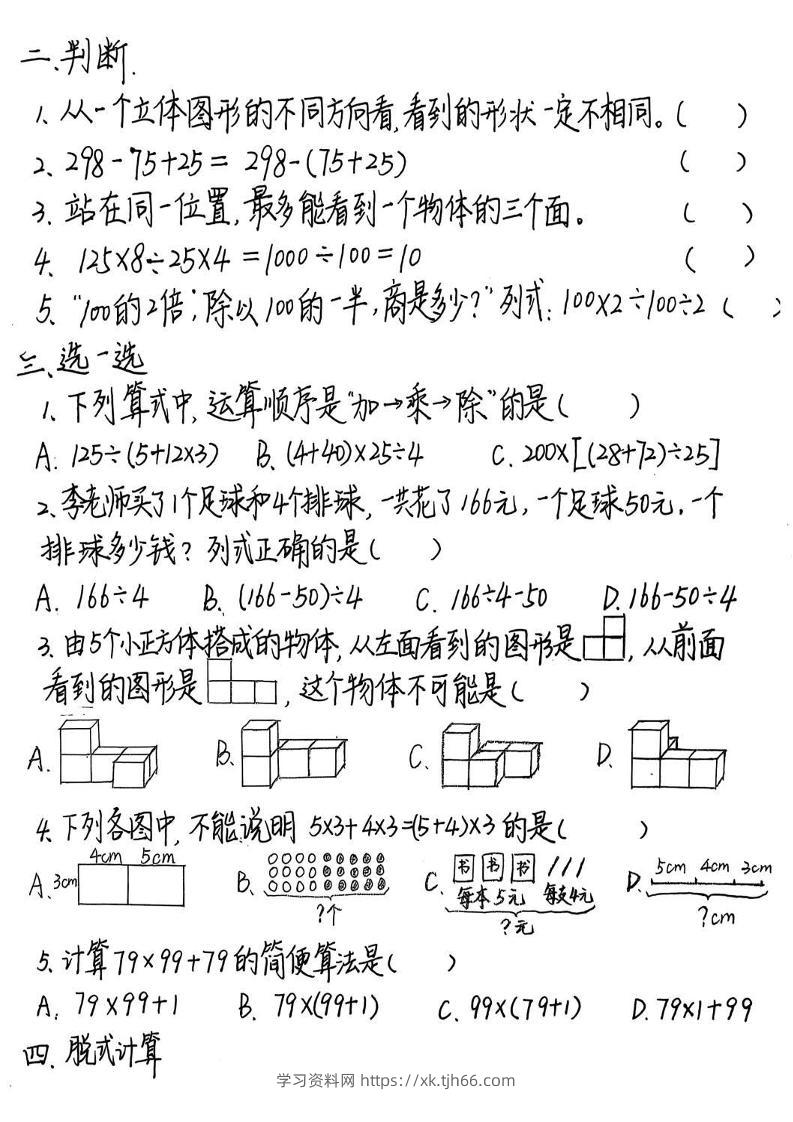 二、判断.
1、从一个立体图形的不同方向看,看到的形状一定不相同。( )
2、298-75+25= 298-(75+25) ( )
3、站在同一位置,最多能看到一个物体的三个面。 ( )
4、125×8÷25×4=1000÷100=10 ( )
5、“100的2倍,除以100的一半,商是多少?”列式:100×2÷100÷2 ( )
三、选一选
1、下列算式中,运算顺序是“加→乘→除”的是( )
A. 125÷(5+12×3) B. (4+40)×25÷4 C. 200×[(28+72)÷25]
2、李老师买了1个足球和4个排球,一共花了166元,一个足球50元,一个
排球多少钱?列式正确的是( )
A. 166÷4 B. (166-50)÷4 C. 166÷4-50 D.166-50÷4
3、由5个小正方体搭成的物体,从左面看到的图形是 ,从前面
看到的图形是 ,这个物体不可能是( )
A. B. C. D.
4、下列各图中,不能说明 5×3+4×3=(5+4)×3 的是( )
A. 3cm 4cm 5cm B. ?个 C. 书 书 书 每本5元 每支4元 ?元 D. 5cm 4cm 3cm ?cm
5、计算79×99+79的简便算法是( )
A. 79×99+1 B. 79×(99+1) C. 99×(79+1) D. 79×1+99
四、脱式计算
学习资料网 https://xk.tjh66.com